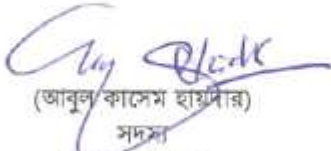 (আবুল কাসেম হায়দার)
সদস্য